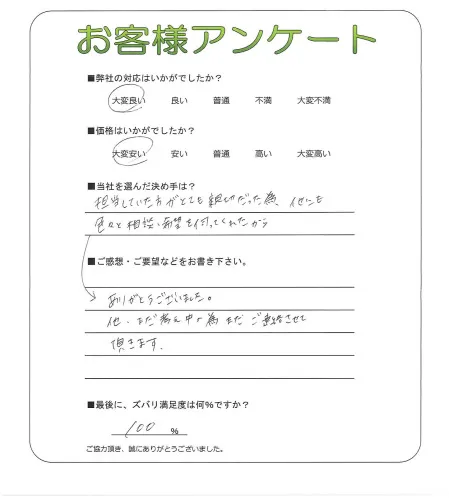 お客様アンケート
■弊社の対応はいかがでしたか？
大変良い 良い 普通 不満 大変不満
■価格はいかがでしたか？
大変安い 安い 普通 高い 大変高い
■当社を選んだ決め手は？
担当していた方がとても親切だった為、他にも
色々と相談、希望を付ってくれたから
■ご感想・ご要望などをお書き下さい。
ありがとうございました。
他、まだ考え中の為またご連絡させて
頂きます、
■最後に、ズバリ満足度は何％ですか？
100 ％
ご協力頂き、誠にありがとうございました。